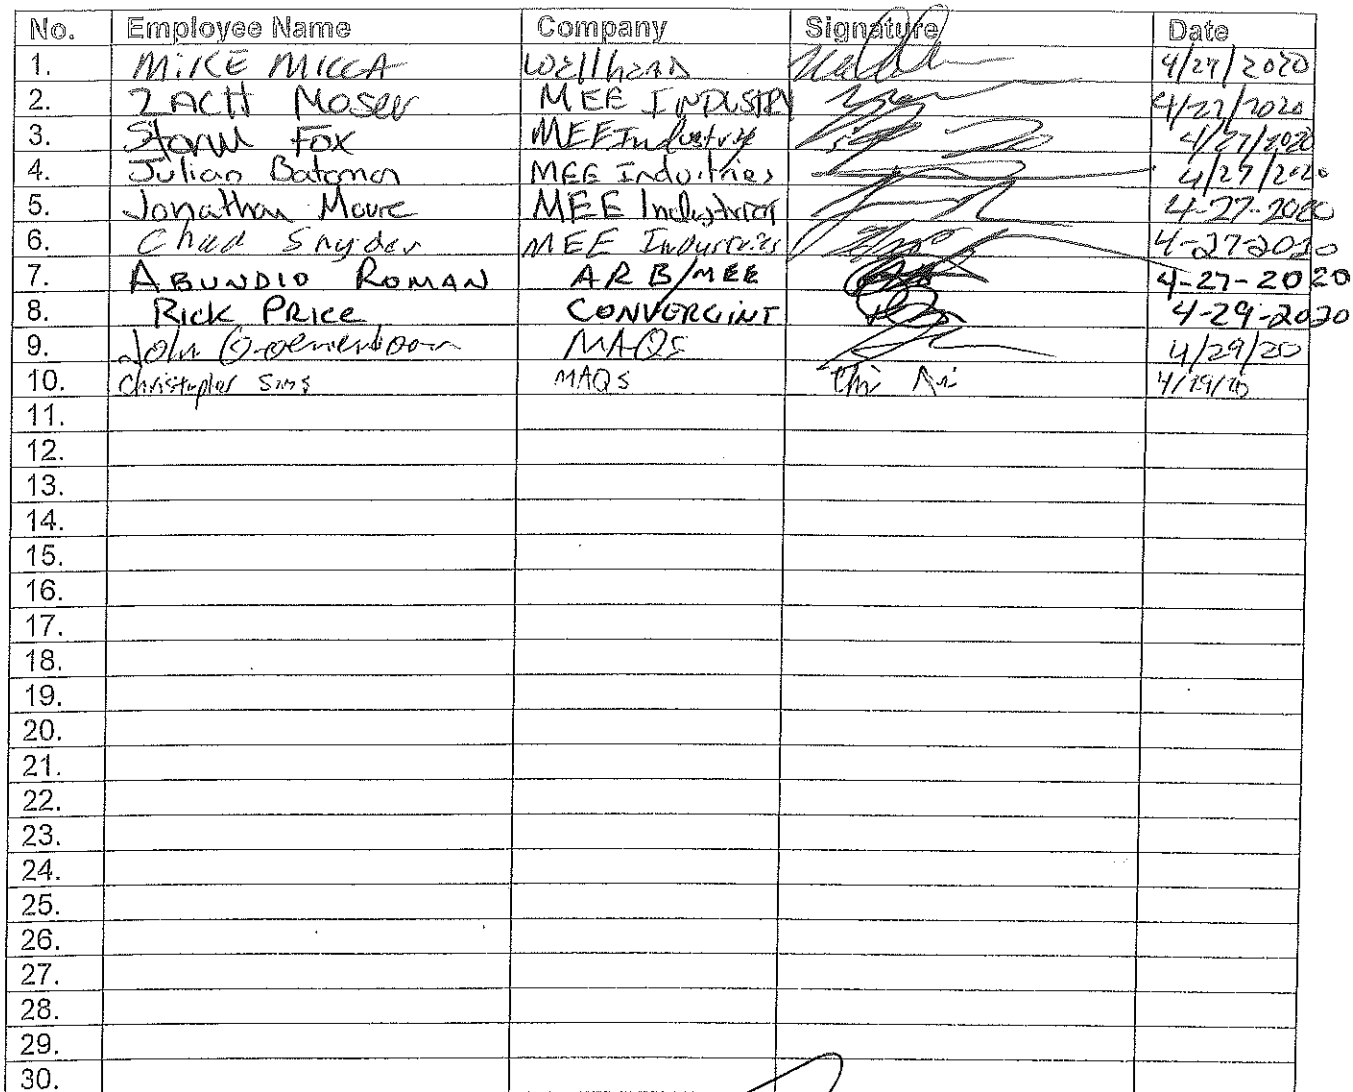 No. Employee Name Company Signature Date
1. MIKE MICCA Wellhead 4/27/2020
2. ZACH Moser MEE INDUSTRY 4/27/2020
3. Storm Fox MEE Industry 4/27/2020
4. Julian Bateman MEE Industries 4/27/2020
5. Jonathan Moure MEE Industries 4-27-2020
6. Chad Snyder MEE Industries 4-27-2020
7. ABUNDIO ROMAN ARB/MEE 4-27-2020
8. Rick PRice CONVERGINT 4-29-2020
9. John MAQS 4/29/20
10. Christopher Sims MAQS 4/29/20
11.
12.
13.
14.
15.
16.
17.
18.
19.
20.
21.
22.
23.
24.
25.
26.
27.
28.
29.
30.